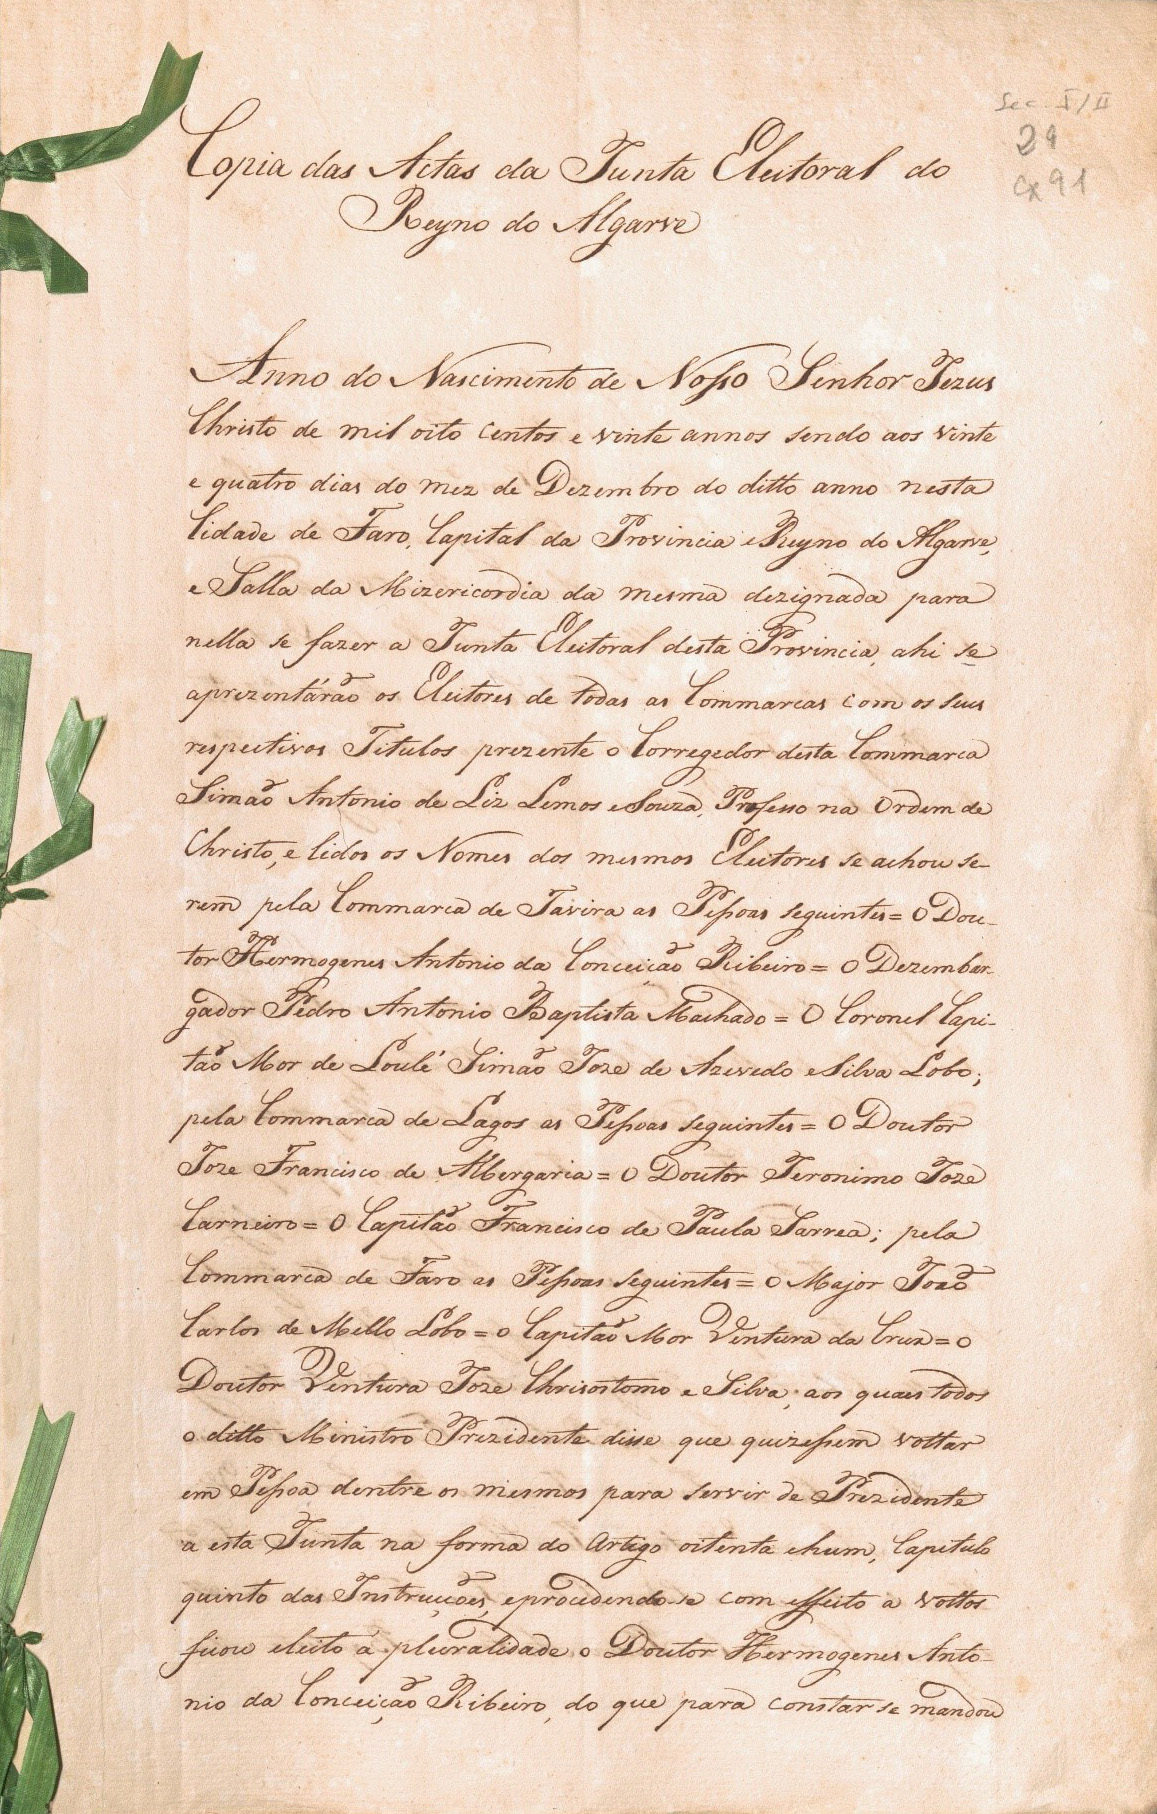 Sec. I/II
29
Cx 91
Copia das Actas da Junta Eleitoral do
Reyno do Algarve
Anno do Nascimento de Nosso Senhor Jezus
Christo de mil oito centos e vinte annos sendo aos vinte
e quatro dias do mez de Dezembro do ditto anno nesta
Cidade de Faro, Capital da Provincia e Reyno do Algarve,
e Salla da Mizericordia da mesma dezignada para
nella se fazer a Junta Eleitoral desta Provincia, ahi se
aprezentárão os Eleitores de todas as Commarcas com os seus
respectivos Titulos prezente o Corregedor desta Commarca
Simão Antonio de Liz Lemos e Souza, Professo na Ordem de
Christo, e lidos os Nomes dos mesmos Eleitores se achou se-
rem pela Commarca de Tavira as Pessoas seguintes = O Dou-
tor Hermogenes Antonio da Conceição Ribeiro = O Dezembar-
gador Pedro Antonio Baptista Machado = O Coronel Capi-
tão Mor de Loulé Simão Joze de Azevedo e Silva Lobo;
pela Commarca de Lagos as Pessoas seguintes = O Doutor
Joze Francisco de Albergaria = O Doutor Jeronimo Joze
Carneiro = O Capitão Francisco de Paula Sarrea; pela
Commarca de Faro as Pessoas seguintes = O Major João
Carlos de Mello Lobo = o Capitão Mor Ventura da Cruz = o
Doutor Ventura Joze Chrisostomo e Silva; aos quaes todos
o ditto Ministro Prezidente disse que quizessem vottar
em Pessoa dentre os mesmos para servir de Prezidente
a esta Junta na forma do Artigo oitenta e hum, Capitulo
quinto das Instrucções, e procedendo-se com effeito a vottos
ficou eleito á pluralidade o Doutor Hermogenes Anto-
nio da Conceição Ribeiro, do que para constar se mandou